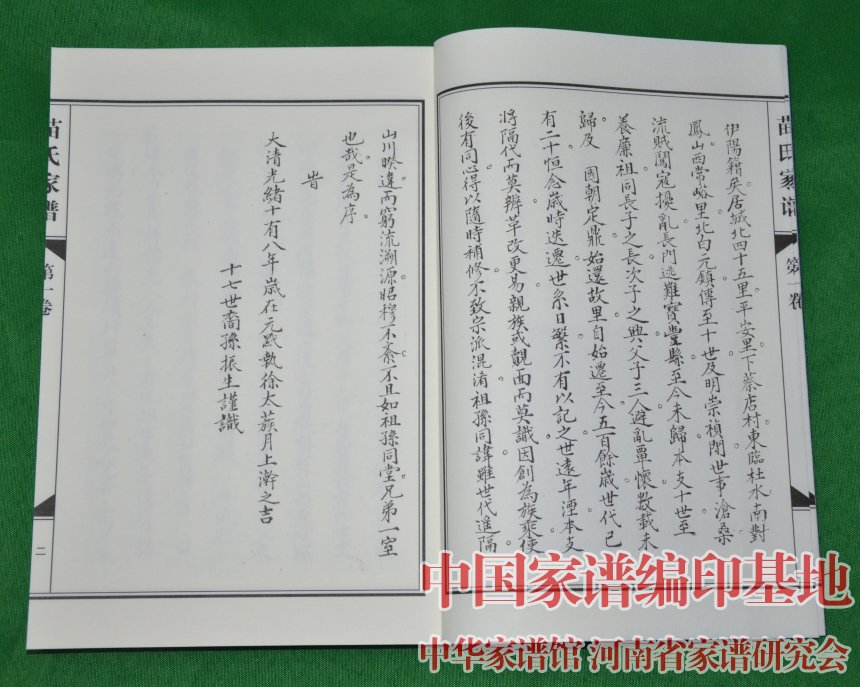 苗氏家谱
第一卷
伊陽籍矣居城北四十五里平安里下蔡店村東臨杜水南對
鳳山西常峪里北白元鎮傳至十世及明崇禎間世事滄桑
流賊闖寇擾亂長門逃難寶豐縣至今未歸本支十世至
養廉祖同長子之長次子之興父子三人避亂覃懷數載未
歸及 國朝定鼎始還故里自始遷至今五百餘歲世代已
有二十恒念歲時迭遷世系日繁不有以記之世遠年湮本支
將隔代而莫辨革改更易親族或覿面而莫識因創為族乘使
後有同心得以隨時補修不致宗派混淆祖孫同諱雖世代遙隔
山川暌違而窮流溯源昭穆不紊不且如祖孫同堂兄弟一室
也哉是為序
旹
大清光緒十有八年歲在元黓執徐太蔟月上澣之吉
十七世裔孫振生謹識
苗氏家譜
第一卷
二
中国家谱编印基地
中华家谱馆 河南省家谱研究会